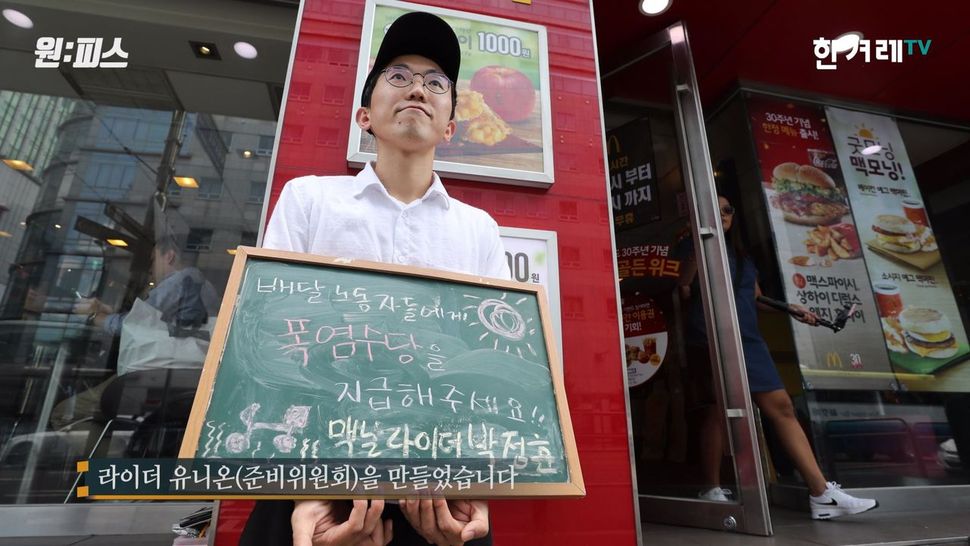 원:피스
한겨레TV
1000원
배달 노동자들에게!
폭염수당을
지급해주세요!!
맥날라이더 박정훈
라이더 유니온(준비위원회)을 만들었습니다
00원
부터
까지
30주년 기념
골든 위크
30주년 기념
한정 메뉴 출시!
굿모닝
맥모닝!
베이컨 에그 맥머핀
소시지 에그 맥머핀
맥스파이시
상하이 디럭스
30